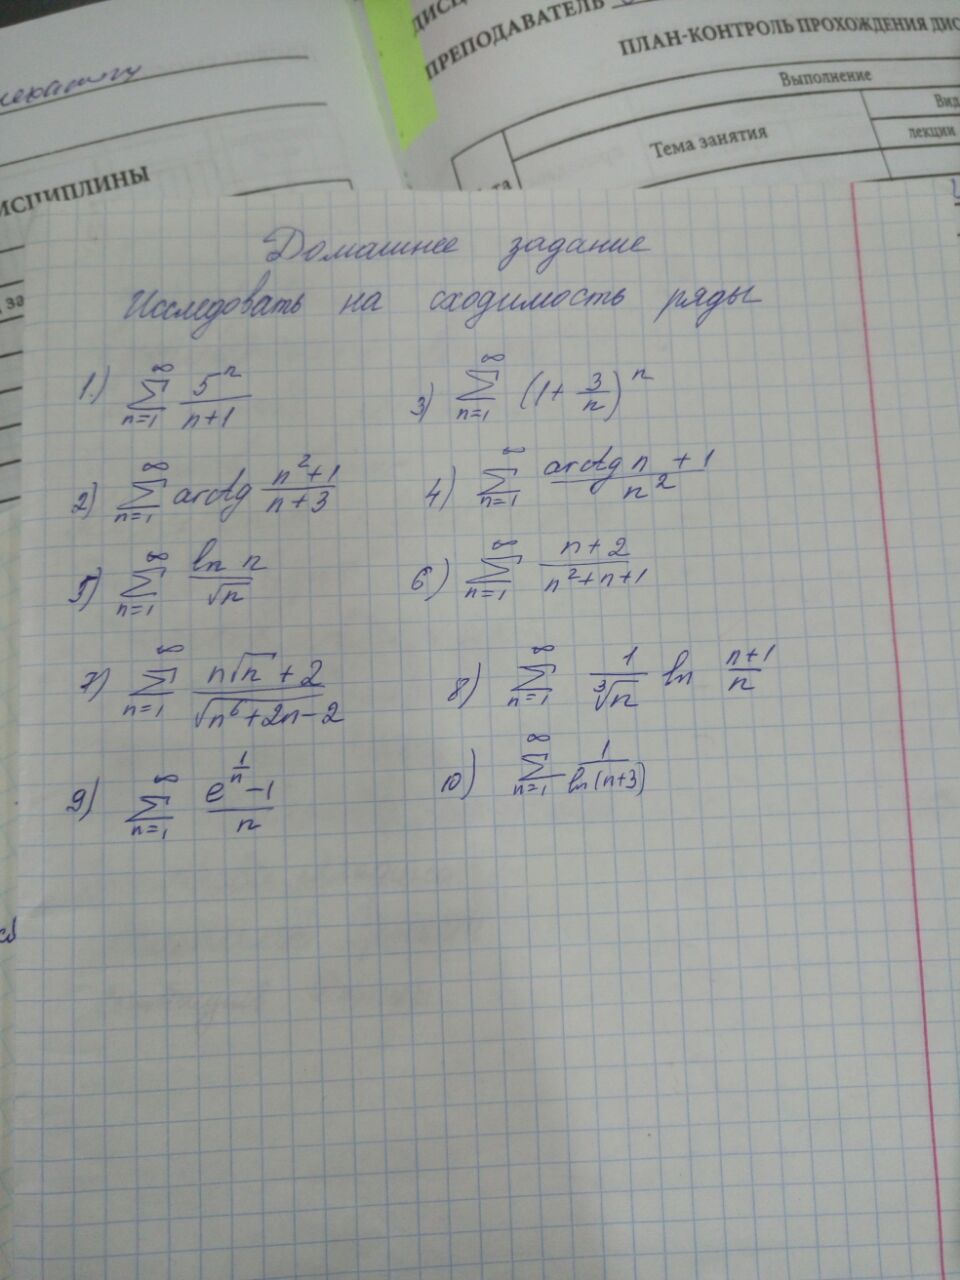 ПРЕПОДАВАТЕЛЬ
ПЛАН-КОНТРОЛЬ ПРОХОЖДЕНИЯ ДИС
Выполнение
Вид
Тема занятия
лекции
ИСЦИПЛИНЫ
Домашнее задание
Исследовать на сходимость ряды
1.) ∑_{n=1}^{∞} 5^n/(n+1) 3) ∑_{n=1}^{∞} (1+3/n)^n
2) ∑_{n=1}^{∞} arctg (n²+1)/(n+3) 4) ∑_{n=1}^{∞} (arctg n + 1)/n²
5) ∑_{n=1}^{∞} ln n/√n 6) ∑_{n=1}^{∞} (n+2)/(n²+n+1)
7) ∑_{n=1}^{∞} (n√n+2)/√(n⁶+2n-2) 8) ∑_{n=1}^{∞} 1/∛n ln (n+1)/n
9) ∑_{n=1}^{∞} (e^{1/n}-1)/n 10) ∑_{n=1}^{∞} 1/ln(n+3)